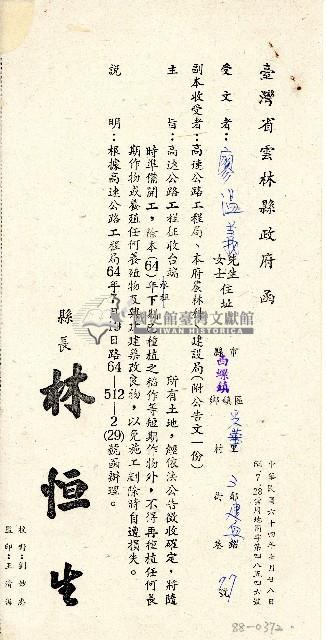 臺灣省雲林縣政府函
中華民國六十四年七月廿八日
64.7.28雲府地用字第四八五四六號
受文者：廖溫義 先生女士 住址 縣市 西螺鎮 鄉鎮區 吳厝里村 3 鄰 建興路街 97號
副本收受者：高速公路工程局、本府農林科、建設局（附公告文一份）
主旨：高速公路工程征收台端 所有土地，經依法公告徵收確定，將隨
時準備開工，除本(64)年下期已種植之稻作等短期作物外，不得再種植任何長
期作物或養殖任何養殖物及興建建築改良物，以免施工剷除時自遭損失。
說明：根據高速公路工程局64年7月19日路64—512—2(29)號函辦理。
縣長 林恒生
校對：劉
監印：王
88-0372
國史館臺灣文獻館
TAIWAN HISTORICA